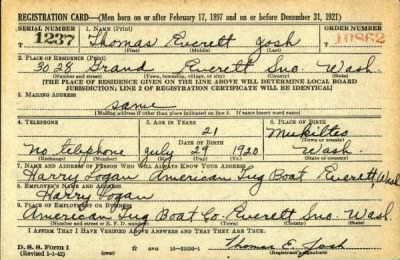 REGISTRATION CARD—(Men born on or after February 17, 1897 and on or before December 31, 1921)
SERIAL NUMBER 1. NAME (Print) ORDER NUMBER
1237 Thomas Everett Josh 10862
(First) (Middle) (Last)
2. PLACE OF RESIDENCE (Print)
3028 Grand Everett Sno. Wash.
(Number and street) (Town, township, village, or city) (County) (State)
[THE PLACE OF RESIDENCE GIVEN ON THE LINE ABOVE WILL DETERMINE LOCAL BOARD
JURISDICTION; LINE 2 OF REGISTRATION CERTIFICATE WILL BE IDENTICAL]
3. MAILING ADDRESS
same
[Mailing address if other than place indicated on line 2. If same insert word same]
4. TELEPHONE 5. AGE IN YEARS 6. PLACE OF BIRTH
21 Mukilteo
DATE OF BIRTH (Town or county)
No telephone July 29 1920 Wash.
(Exchange) (Number) (Mo.) (Day) (Yr.) (State or country)
7. NAME AND ADDRESS OF PERSON WHO WILL ALWAYS KNOW YOUR ADDRESS
Harry Logan American Tug Boat Everett, Wash
8. EMPLOYER'S NAME AND ADDRESS
Harry Logan
9. PLACE OF EMPLOYMENT OR BUSINESS
American Tug Boat Co. Everett Sno. Wash.
(Number and street or R. F. D. number) (Town) (County) (State)
I AFFIRM THAT I HAVE VERIFIED ABOVE ANSWERS AND THAT THEY ARE TRUE.
D. S. S. Form 1
(Revised 1-1-42) GPO Thomas E. Josh